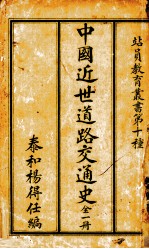 站員教育叢書第十種
中國近世道路交通史全一冊
泰和楊得任編